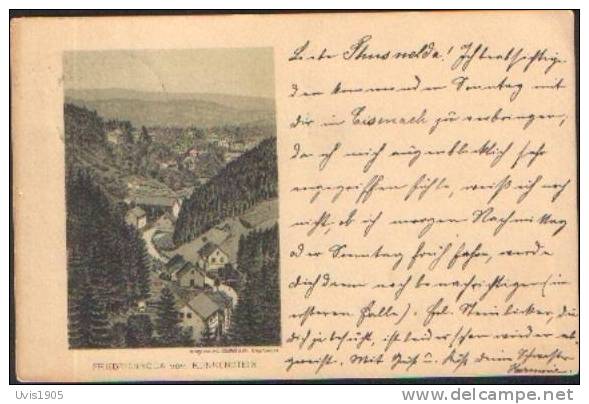 Liebe Thusnelda! Ich beabsichtige
den kommenden Sonntag mit
dir in Eisenach zu verbringen,
da ich mich augenblicklich sehr
angegriffen fühle, weiß ich noch
nicht, ob ich morgen Nachmittag
oder Sonntag früh fahre, werde
dich dann noch benachrichtigen (im
ersteren Falle). Frl. Steinbicker, die
dich ja besucht, ist leider schon wieder ab-
gereist. Mit Gruß u. Kuß deine Schwester
Hermine.
FRIEDRICHRODA VOM
Uvis1905
www.delcampe.net